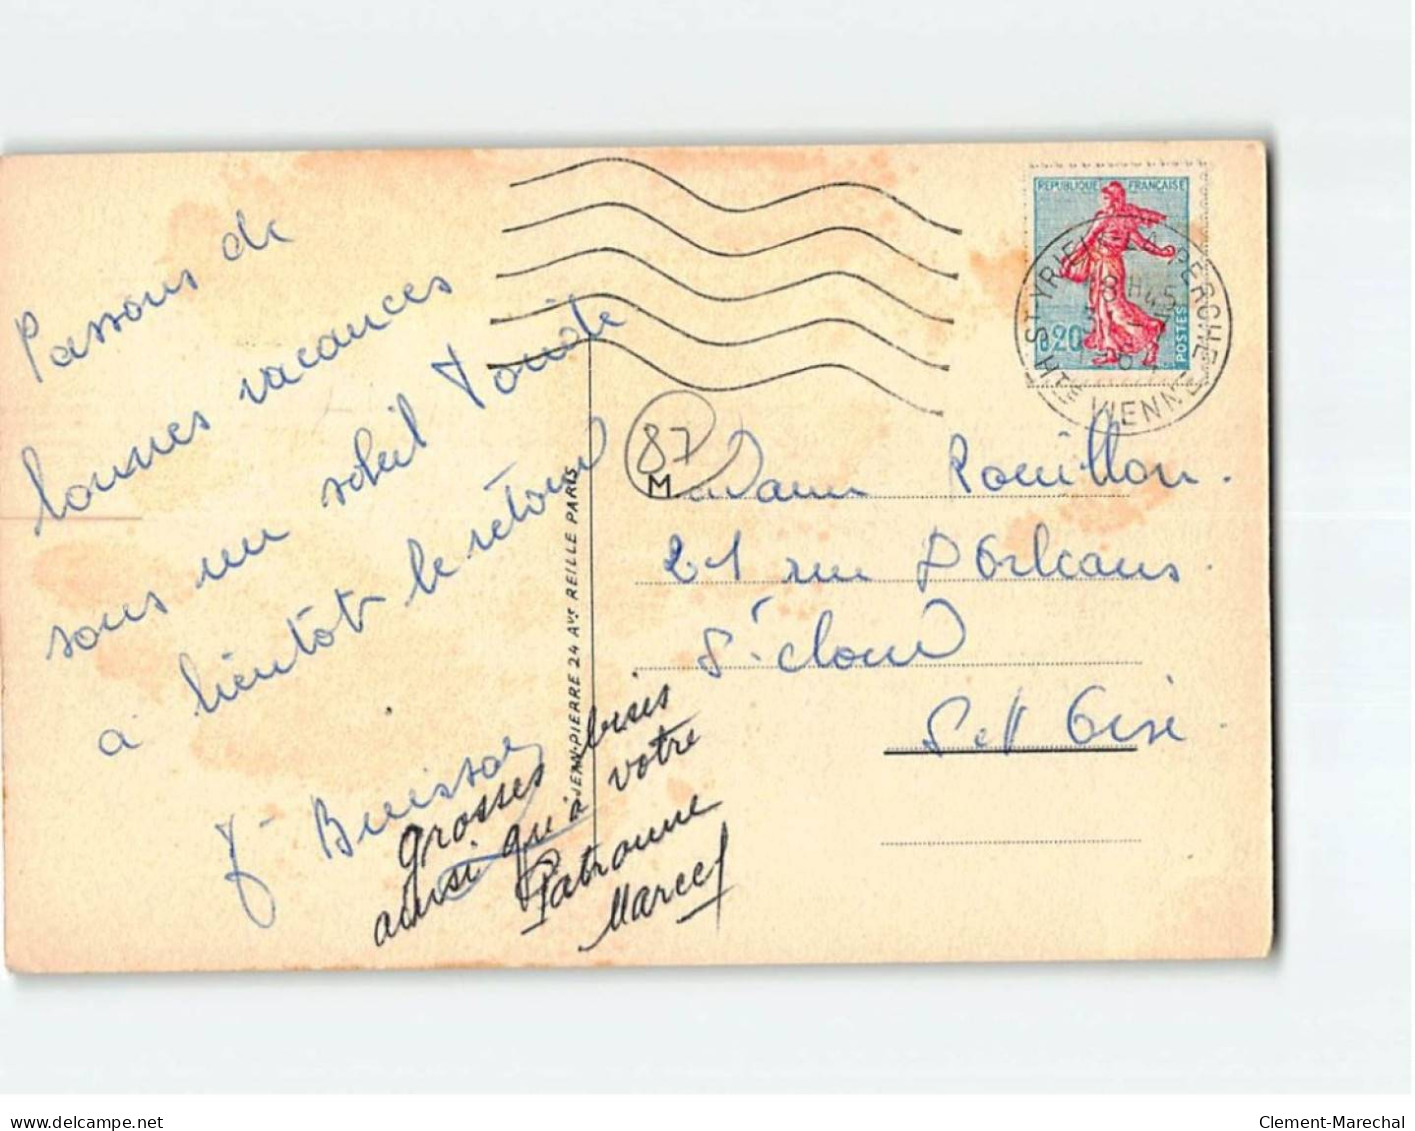 Passons de
bonnes vacances
sous un soleil Torride
à bientôt le retour
Buisson
grosses bises
ainsi qu'à votre
Patronne
Marcel
JEAN-PIERRE 24 AV. REILLE PARIS
REPUBLIQUE FRANÇAISE
0.20
POSTES
ST YRIEIX-LA-PERCHE
18H45
HTE VIENNE
87
Madame Rouillon.
21 rue d'Orleans.
St cloud
S et Oise
delcampe.net
Clement-Marechal